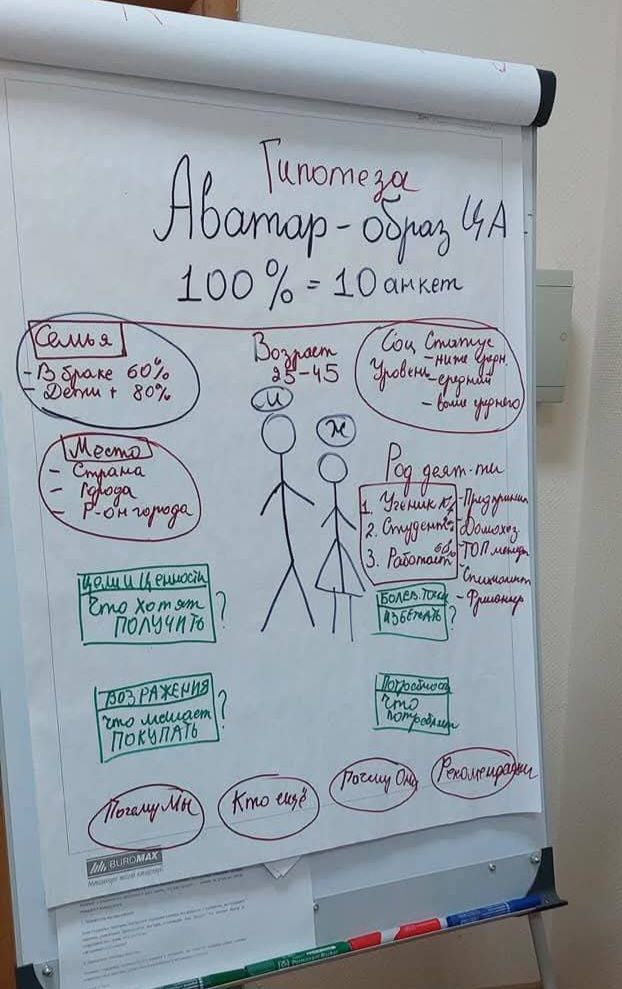 Гипотеза
Аватар - образ ЦА
100% = 10 анкет
Семья
- В браке 60%
- Дети + 80%
Возраст
25-45
Соц Статус
Уровень - ниже средн.
- средний
- выше среднего
М
Ж
Место
- Страна
- Города
- Р-он города
Род деят-ти
1. Ученик
2. Студент
3. Работает 60%
- Предприним
- Домохоз.
- ТОП менедж
- Специалист
- Фрилансер
ЦЕЛИ И ЦЕННОСТИ
Что хотят
ПОЛУЧИТЬ ?
БОЛЕВ. ТОЧКИ
ИЗБЕЖАТЬ ?
ВОЗРАЖЕНИЯ
что мешает
ПОКУПАТЬ ?
Потребность
что
Почему Мы
Кто ещё
Почему Они
Рекомендации
BUROMAX